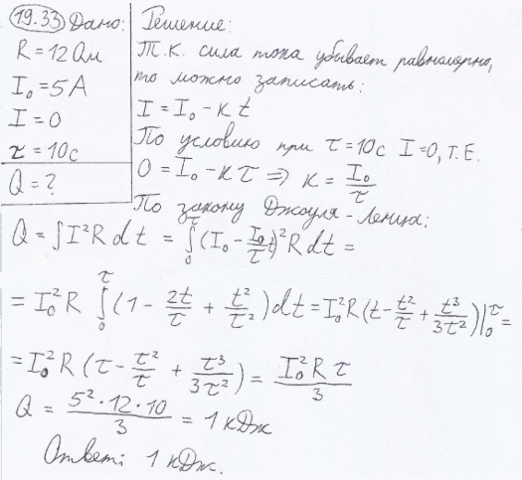 19.33 Дано:
R = 12 Ом
I₀ = 5 А
I = 0
τ = 10 с
Q = ?
Решение:
Т.к. сила тока убывает равномерно,
то можно записать:
I = I₀ - кt
По условию при τ = 10 с I = 0, т.е.
0 = I₀ - кτ ⇒ к = I₀/τ
По закону Джоуля-Ленца:
Q = ∫I²Rdt = ∫₀^τ (I₀ - I₀/τ t)² Rdt =
= I₀²R ∫₀^τ (1 - 2t/τ + t²/τ²)dt = I₀²R(t - t²/τ + t³/3τ²)|₀^τ =
= I₀²R(τ - τ²/τ + τ³/3τ²) = I₀²Rτ/3
Q = 5²·12·10/3 = 1 кДж
Ответ: 1 кДж.